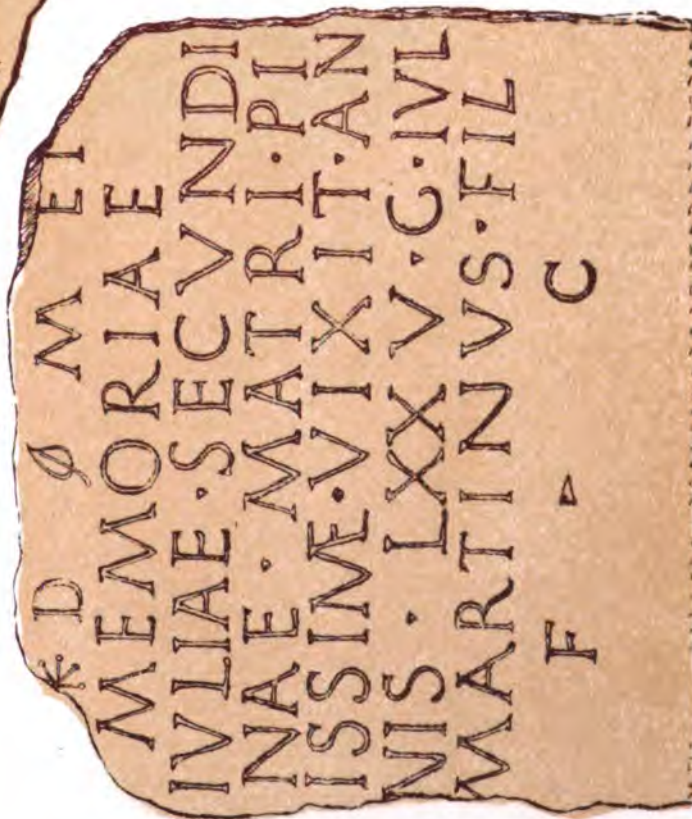 D M ET
MEMORIAE
IVLIAE · SECVNDI
NAE · MATRI · PI
ISSIME · VIXIT · AN
NIS · LXXV · G · IVL
MARTINVS · FIL
F · C